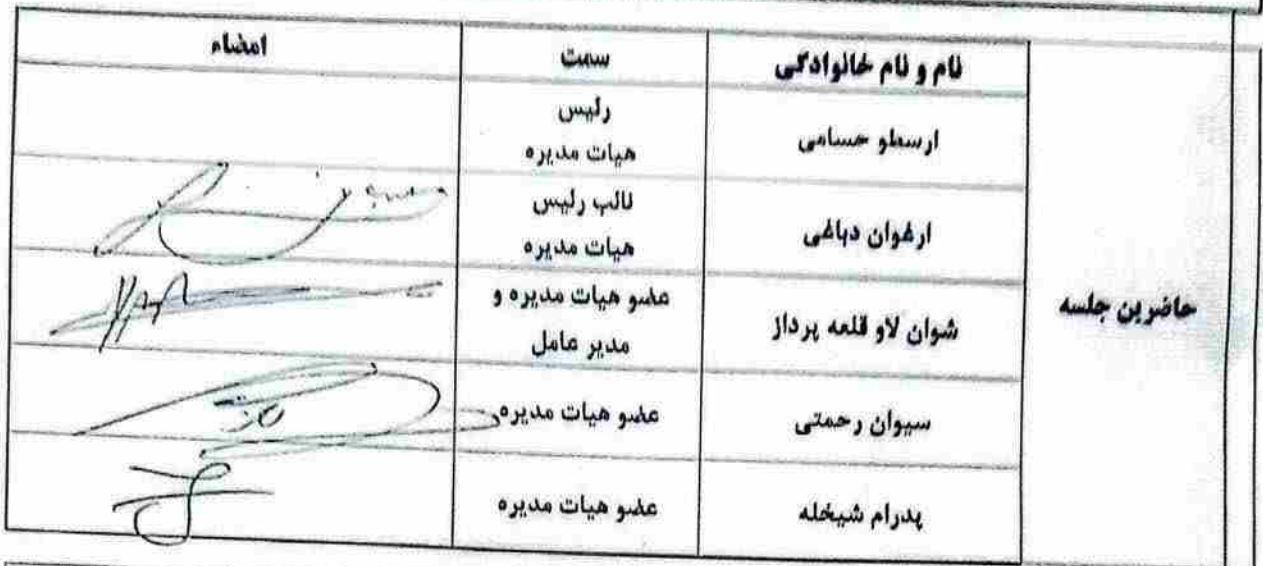 حاضرین جلسه
نام و نام خانوادگی سمت امضاء
ارسطو حسامی رئیس
هیات مدیره
ارغوان دباغی نائب رئیس
هیات مدیره
شوان لاو قلعه پرداز عضو هیات مدیره و
مدیر عامل
سیوان رحمتی عضو هیات مدیره
پدرام شیخله عضو هیات مدیره